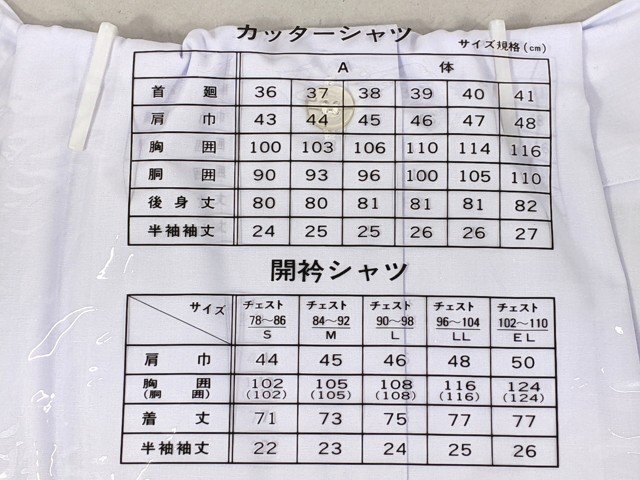 カッターシャツ
サイズ規格(cm)
A 体
首廻 36 37 38 39 40 41
肩巾 43 44 45 46 47 48
胸囲 100 103 106 110 114 116
胴囲 90 93 96 100 105 110
後身丈 80 80 81 81 81 82
半袖袖丈 24 25 25 26 26 27
開衿シャツ
サイズ チェスト チェスト チェスト チェスト チェスト
78～86 84～92 90～98 96～104 102～110
S M L LL EL
肩巾 44 45 46 48 50
胸囲 102 105 108 116 124
(胴囲) (102) (105) (108) (116) (124)
着丈 71 73 75 77 77
半袖袖丈 22 23 24 25 26